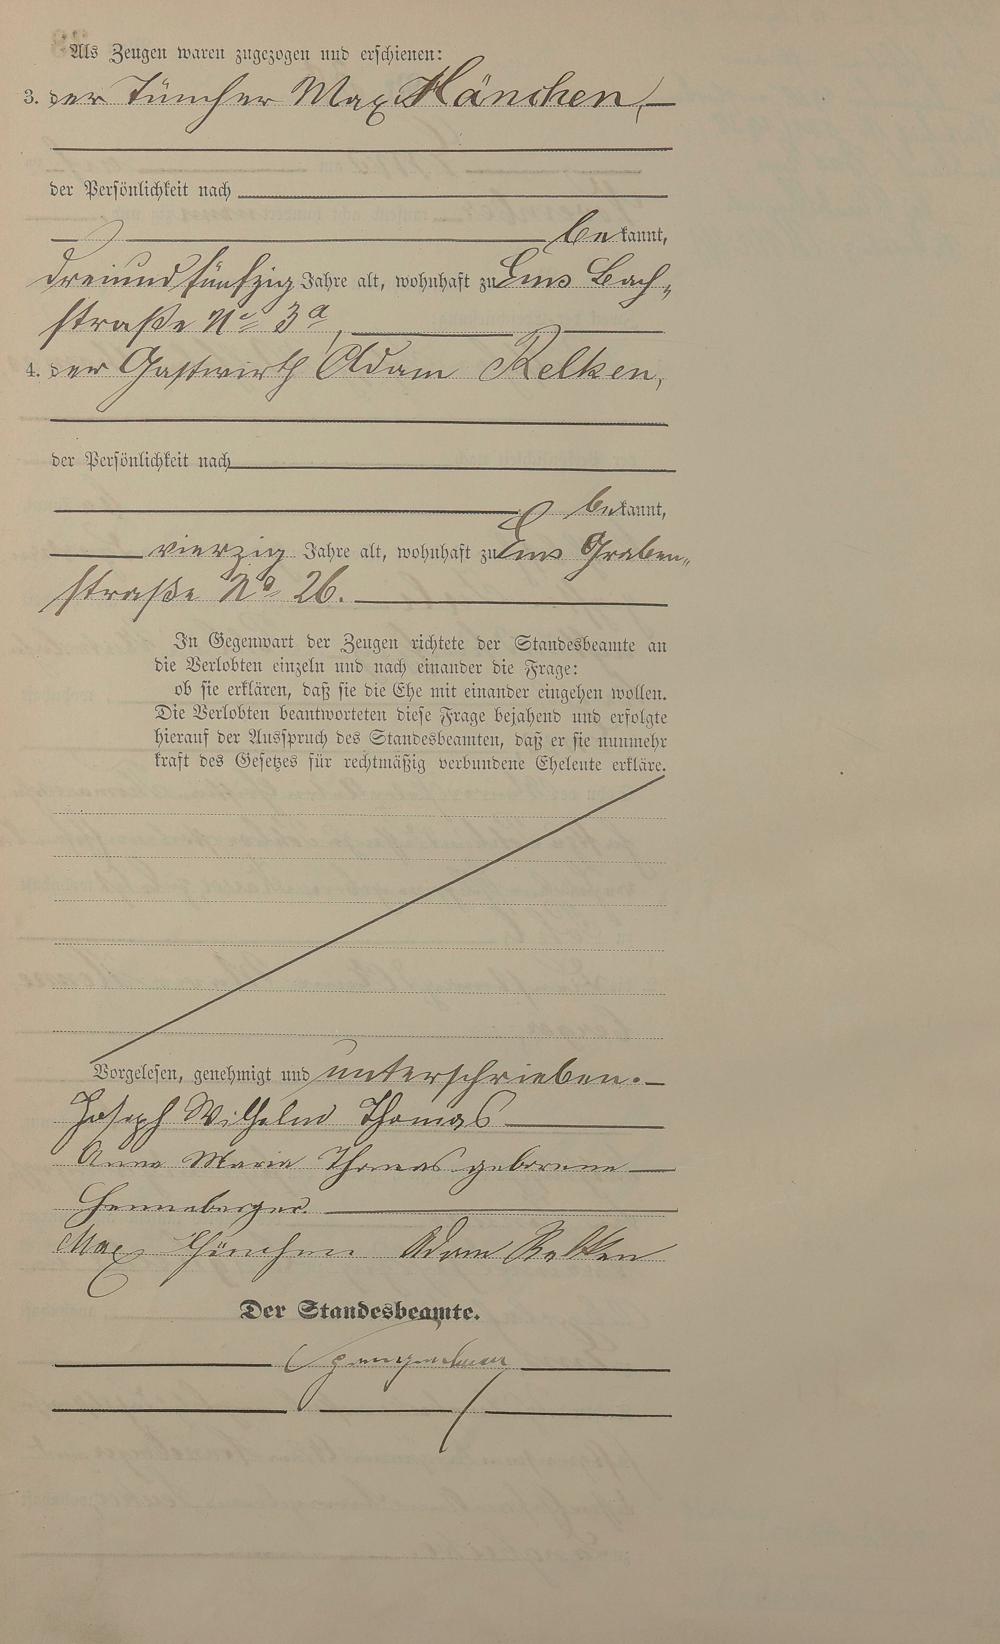 Als Zeugen waren zugezogen und erschienen:
3. der Tüncher Max Hänchen,
der Persönlichkeit nach
bekannt,
dreiundfünfzig Jahre alt, wohnhaft zu Ems Bach-
straße No 3a,
4. der Gastwirth Adam Relken,
der Persönlichkeit nach
bekannt,
vierzig Jahre alt, wohnhaft zu Ems Graben-
straße No 26.
In Gegenwart der Zeugen richtete der Standesbeamte an
die Verlobten einzeln und nach einander die Frage:
ob sie erklären, daß sie die Ehe mit einander eingehen wollen.
Die Verlobten beantworteten diese Frage bejahend und erfolgte
hierauf der Ausspruch des Standesbeamten, daß er sie nunmehr
kraft des Gesetzes für rechtmäßig verbundene Eheleute erkläre.
Vorgelesen, genehmigt und unterschrieben.
Joseph Wilhelm Thomas
Anna Maria Thomas geborene
Henneberger.
Max Hänchen Adam Relken
Der Standesbeamte.